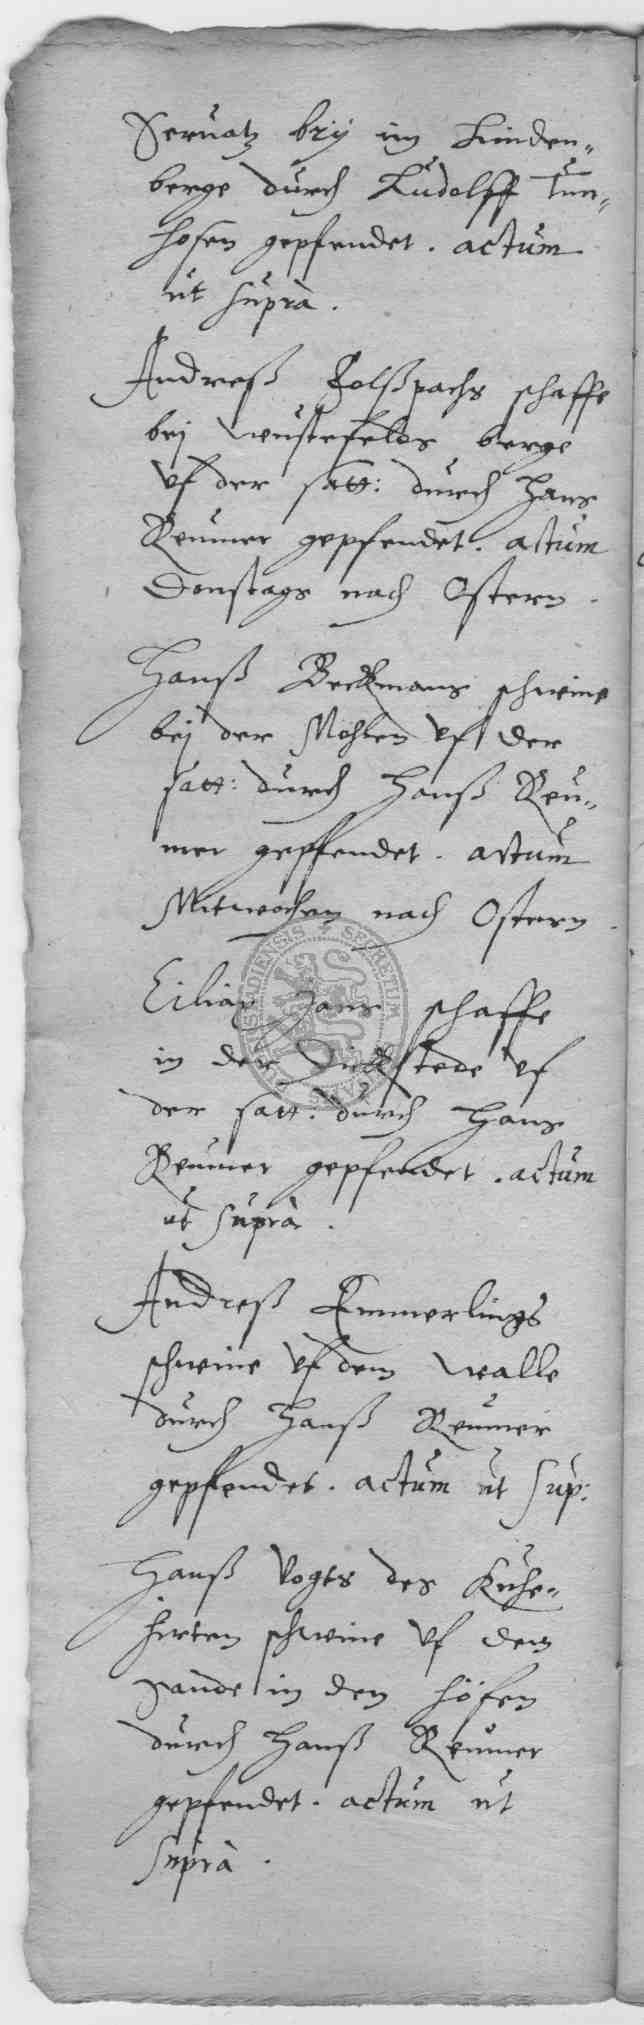 Seruatz bey im Linden-
berge durch Ludolff Tun-
hosen gepfendet. actum
ut suprà.
Andreß Folßpachs schaffe
bei wustefelds berge
vf der satt: durch Hans
Reumer gepfendet. actum
Donstags nach Ostern.
Hanß Beckmans schweine
bej der Mohlen vf der
satt: durch Hanß Reu-
mer gepfendet. actum
Mitwochen nach Ostern.
Hans schaffe
in der vf
der satt: durch Hans
Reumer gepfendet. actum
ut suprà.
Andreß Emmerlings
schweine vf dem walle
durch Hanß Reumer
gepfendet. actum ut sup:
Hanß Vogts des Kuhe-
hirten schweine vf dem
sande in den höfen
durch Hanß Reumer
gepfendet. actum ut
suprà.